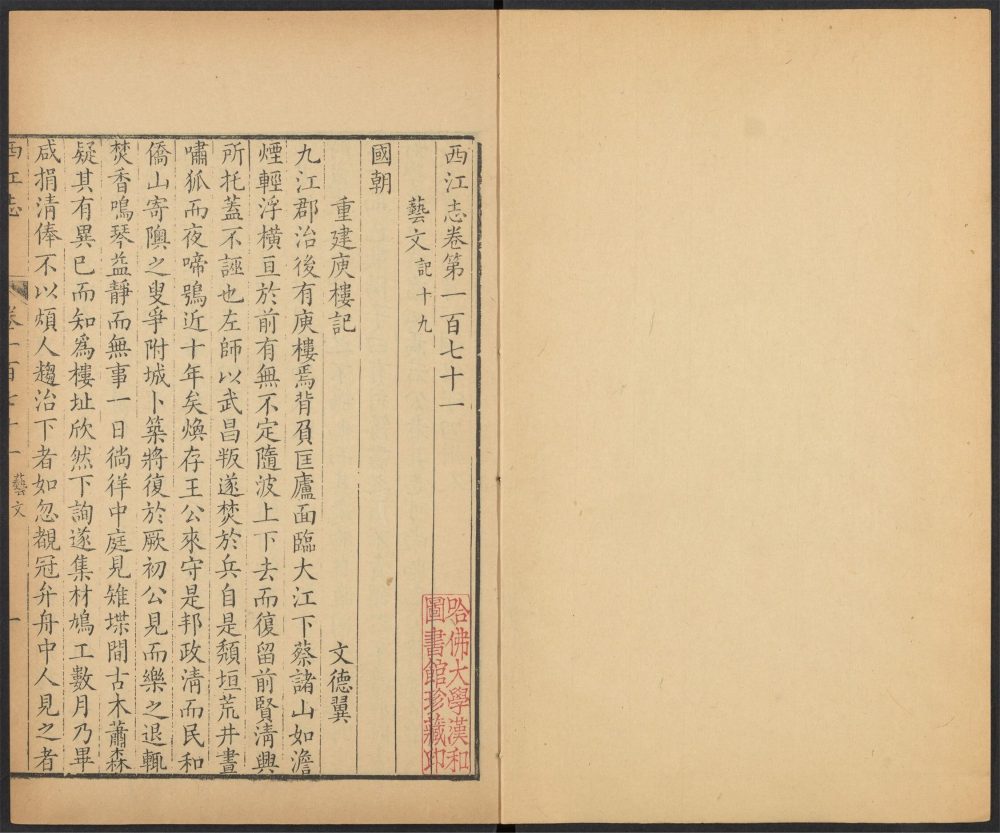 西江志卷第一百七十一
藝文記十九
國朝
重建庾樓記 文德翼
九江郡治後有庾樓焉背負匡廬面臨大江下蔡諸山如澹
煙輕浮橫亘於前有無不定隨波上下去而復留前賢清興
所托蓋不誣也左師以武昌叛遂焚於兵自是頹垣荒井晝
嘯狐而夜啼鴞近十年矣煥存王公來守是邦政清而民和
僑山寄隩之叟爭附城卜築將復於厥初公見而樂之退輒
焚香鳴琴益靜而無事一日徜徉中庭見雉堞間古木蕭森
疑其有異已而知爲樓址欣然下詢遂集材鳩工數月乃畢
咸捐清俸不以煩人趨治下者如忽覩冠弁舟中人見之者
西江志 卷一百七十一 藝文 一
哈佛大學漢和
圖書館珍藏印